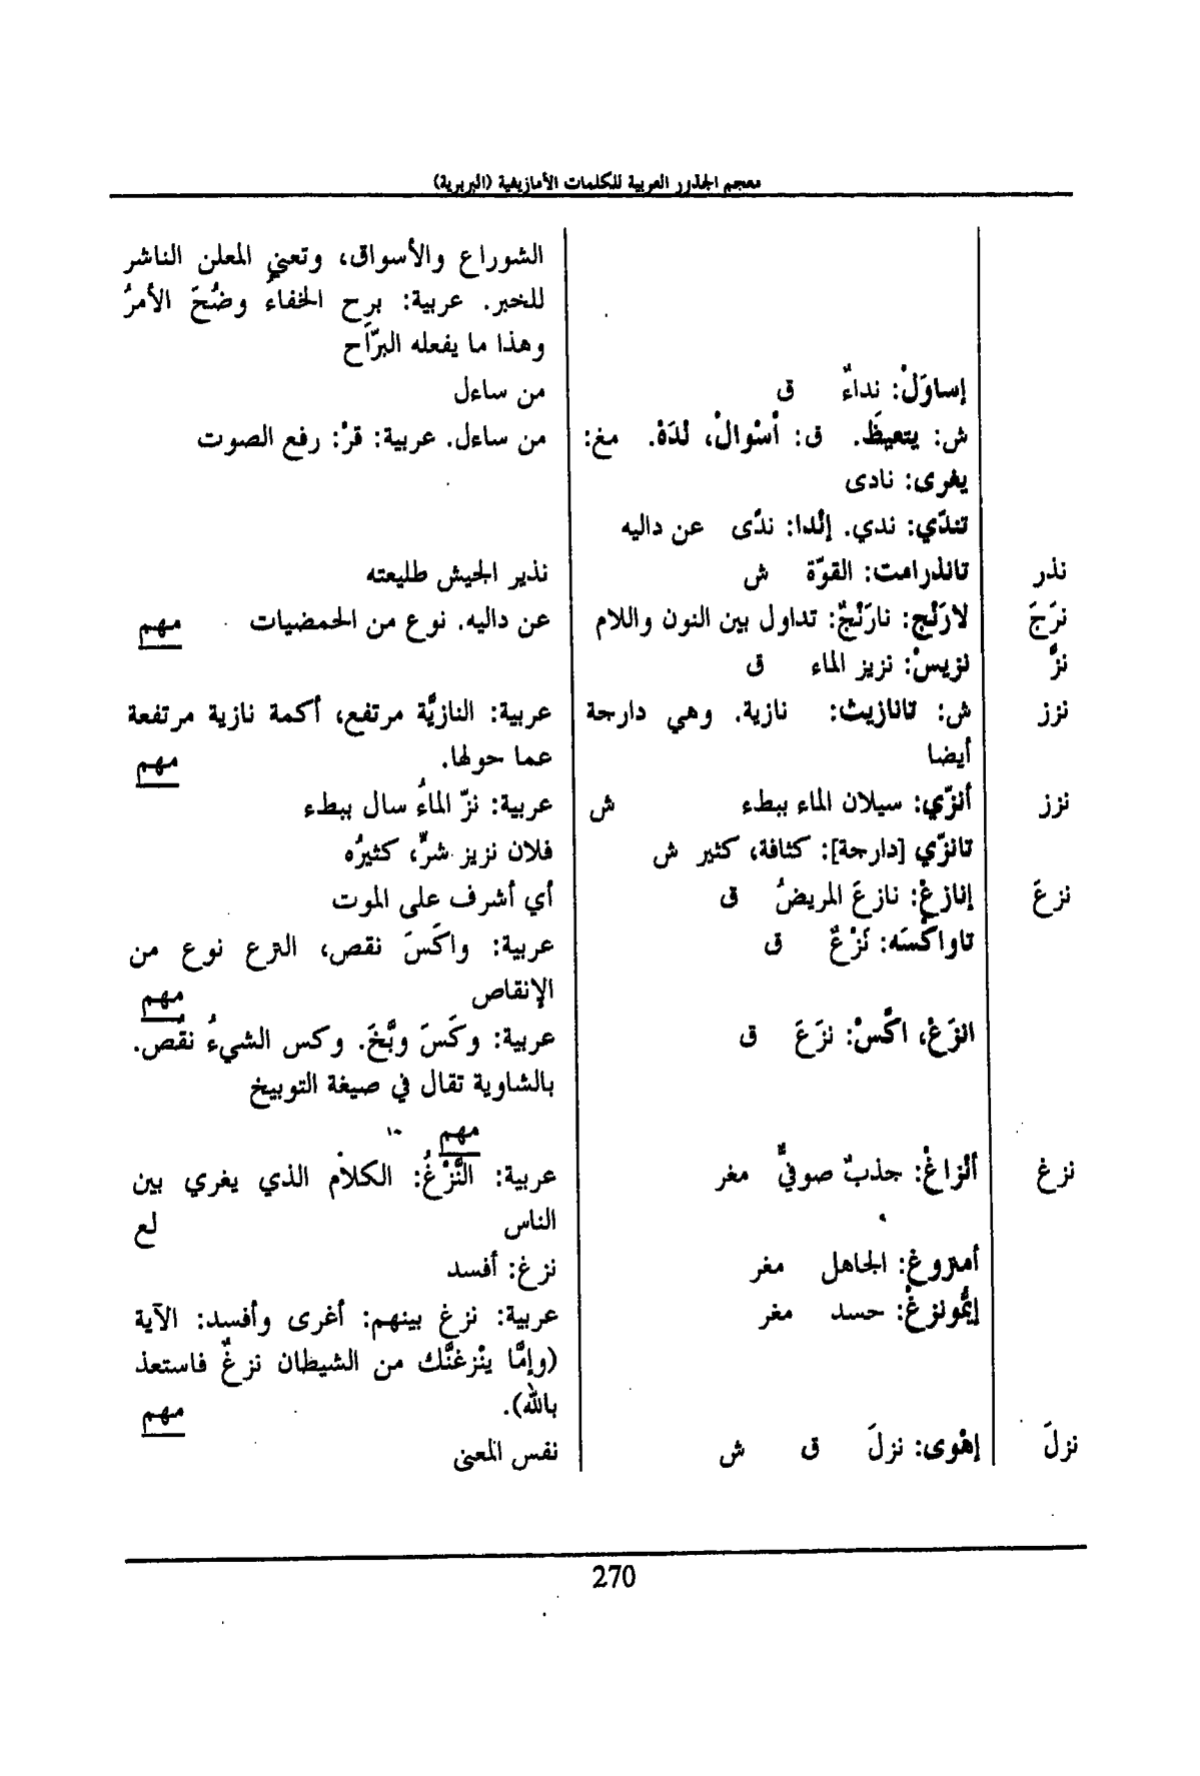 معجم الجذور العربية للكلمات الأمازيغية (البربرية)
الشوراع والأسواق، وتعني المعلن الناشر
للخبر. عربية: برح الخفاءُ وضُحَ الأمرُ
وهذا ما يفعله البرّاح
إساوَلْ: نداءٌ ق من ساءل
ش: يتعيظَ. ق: أسْوالْ، لْدَهْ. مغ: من ساءل. عربية: قرْ: رفع الصوت
يغرى: نادى
تندّي: ندي. إلْدا: ندّى عن داليه
نذر تانذرامت: القوّة ش نذير الجيش طليعته
نرَجَ لارَنْج: نارَنْجٌ: تداول بين النون واللام عن داليه. نوع من الحمضيات مهم
نزَّ نزيسْ: نزيز الماء ق
نزز ش: تانازيث: نازية. وهي دارجة عربية: النازيَّة مرتفع، أكمة نازية مرتفعة
أيضا عما حولها. مهم
نزز أنزّي: سيلان الماء ببطء ش عربية: نزّ الماءُ سال ببطء
تانزّي [دارجة]: كثافة، كثير ش فلان نزيز شرٍّ، كثيرُه
نزعَ إنازعْ: نازعَ المريضُ ق أي أشرف على الموت
تاواكْسَه: نَزْعٌ ق عربية: واكَسَ نقص، النزع نوع من
الإنقاص مهم
انزَعْ، اكَّسْ: نزَعَ ق عربية: وكَسَ وبَّخَ. وكس الشيءُ نقُص.
بالشاوية تقال في صيغة التوبيخ
مهم
نزغ ألْزاغْ: جذبٌ صوفيٌّ مغر عربية: النَّزْغُ: الكلام الذي يغري بين
الناس لع
أمتروغ: الجاهل مغر نزغ: أفسد
إيمُّونزغْ: حسد مغر عربية: نزغ بينهم: أغرى وأفسد: الآية
(وإمَّا ينْزغنَّك من الشيطان نزغٌ فاستعذ
بالله). مهم
نزلَ إهْوى: نزلَ ق ش نفس المعنى
270